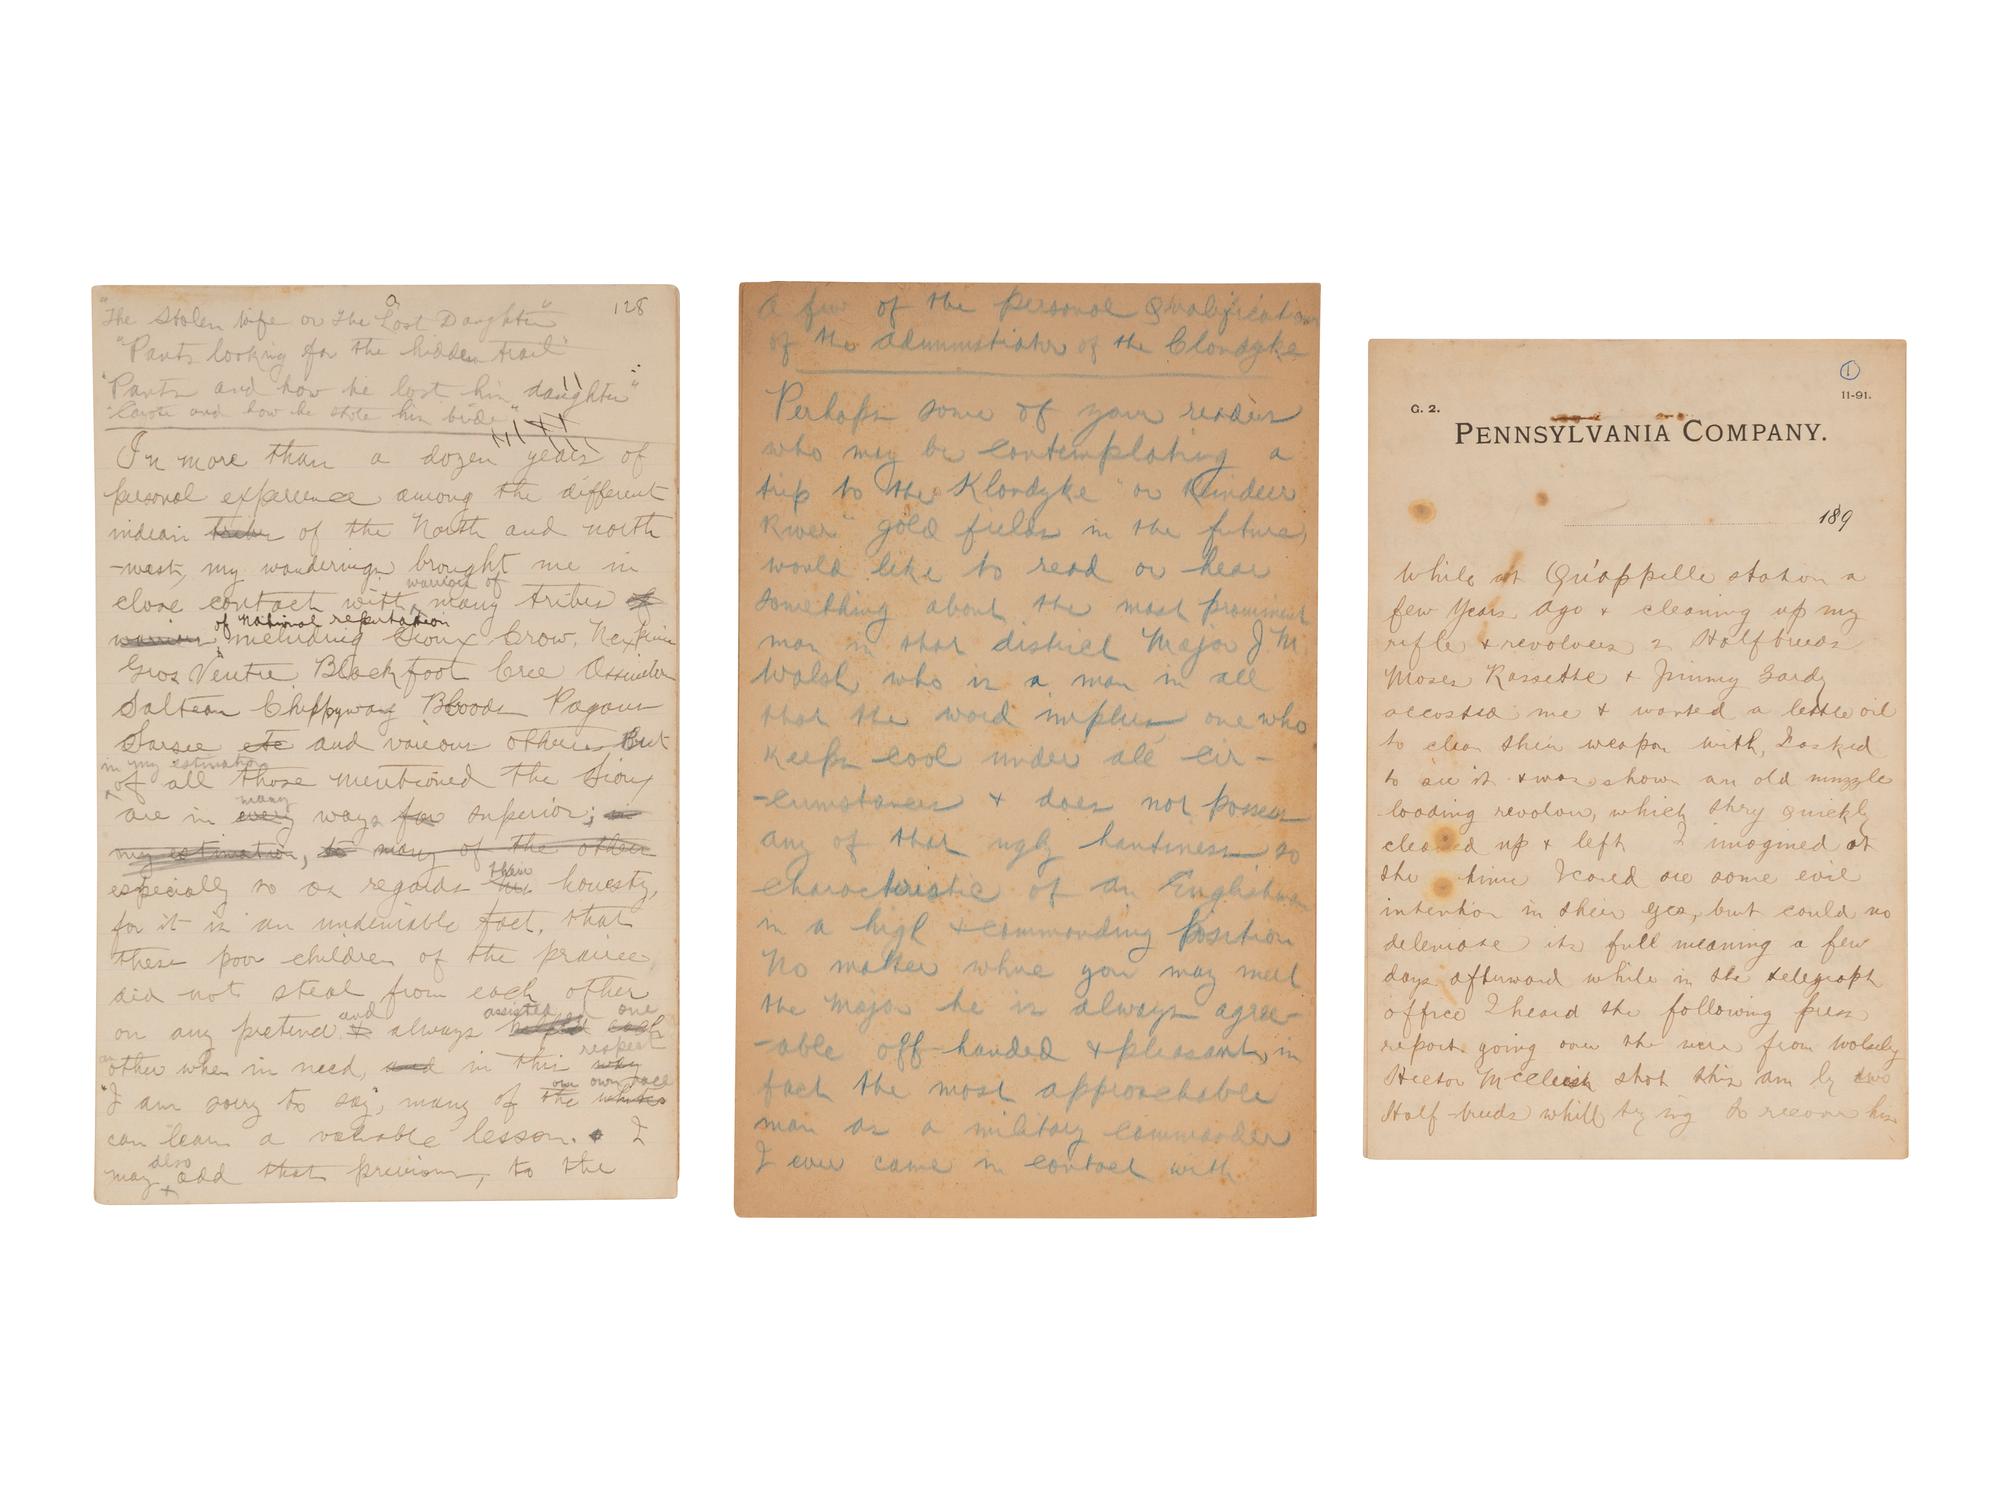 128
"The Stolen Wife or The Lost Daughter"
"Pants looking for the hidden trail"
"Pants and how he lost his daughter"
and how he stole his bride"
In more than a dozen years of
personal experience among the different
indian tribes of the North and north
-west, my wanderings brought me in
warriors of
close contact with many tribes of
of National reputation
warriors including Sioux Crow, Nez Perce
Gros Ventre Blackfoot Cree
Chippyway Bloods
Sarsee etc and various others But
in my estimation
of all those mentioned the Sioux
many
are in every ways far superior; in
my estimation, to many of the other
their
especially so as regards honesty,
for it is an undeniable fact, that
these poor children of the prairie,
did not steal from each other
and assisted one
on any pretend & always helped each
an respect
other when in need, and in this why
our own race
"I am sorry to say", many of the whites
can learn a valuable lesson. I
also
may add that previous, to the
A few of the personal Qualifications
of the administrator of the Clondyke
Perhaps some of your readers
who may be contemplating a
trip to the Klondyke "or Reindeer
River" gold fields in the future,
would like to read or hear
something about the most prominent
man in that district Major J. M.
Walsh, who is a man in all
that the word implies, one who
keeps cool under all cir-
-cumstances & does not possess
any of that ugly hautiness so
characteristic of an Englishman
in a high & commanding position
No matter where you may meet
the Major he is always agree-
-able off-handed & pleasant, in
fact the most approachable
man as a military commander
I ever came in contact with
1
11-91.
G. 2.
PENNSYLVANIA COMPANY.
189
While at Qu'appelle station a
few Years ago & cleaning up my
rifle & revolvers 2 Halfbreeds
Moses Rassette & Jimmy
accosted me & wanted a little oil
to clean their weapon with, I asked
to see it & was shown an old muzzle
loading revolver, which they quickly
cleaned up & left I imagined at
the time I could see some evil
intention in their eyes, but could no
its full meaning a few
days afterward while in the telegraph
office I heard the following press
report going over the wire from Wolseley
Hector McCleish shot this am by two
Half-breeds whilst trying to recover his